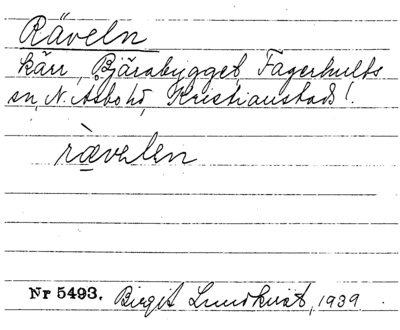 Räveln
kärr, Bjärabygget, Fagerhults
sn, N. Åsbo hd, Kristianstads l.
rævelen
Nr 5493. Birgit Lundkvist, 1939.